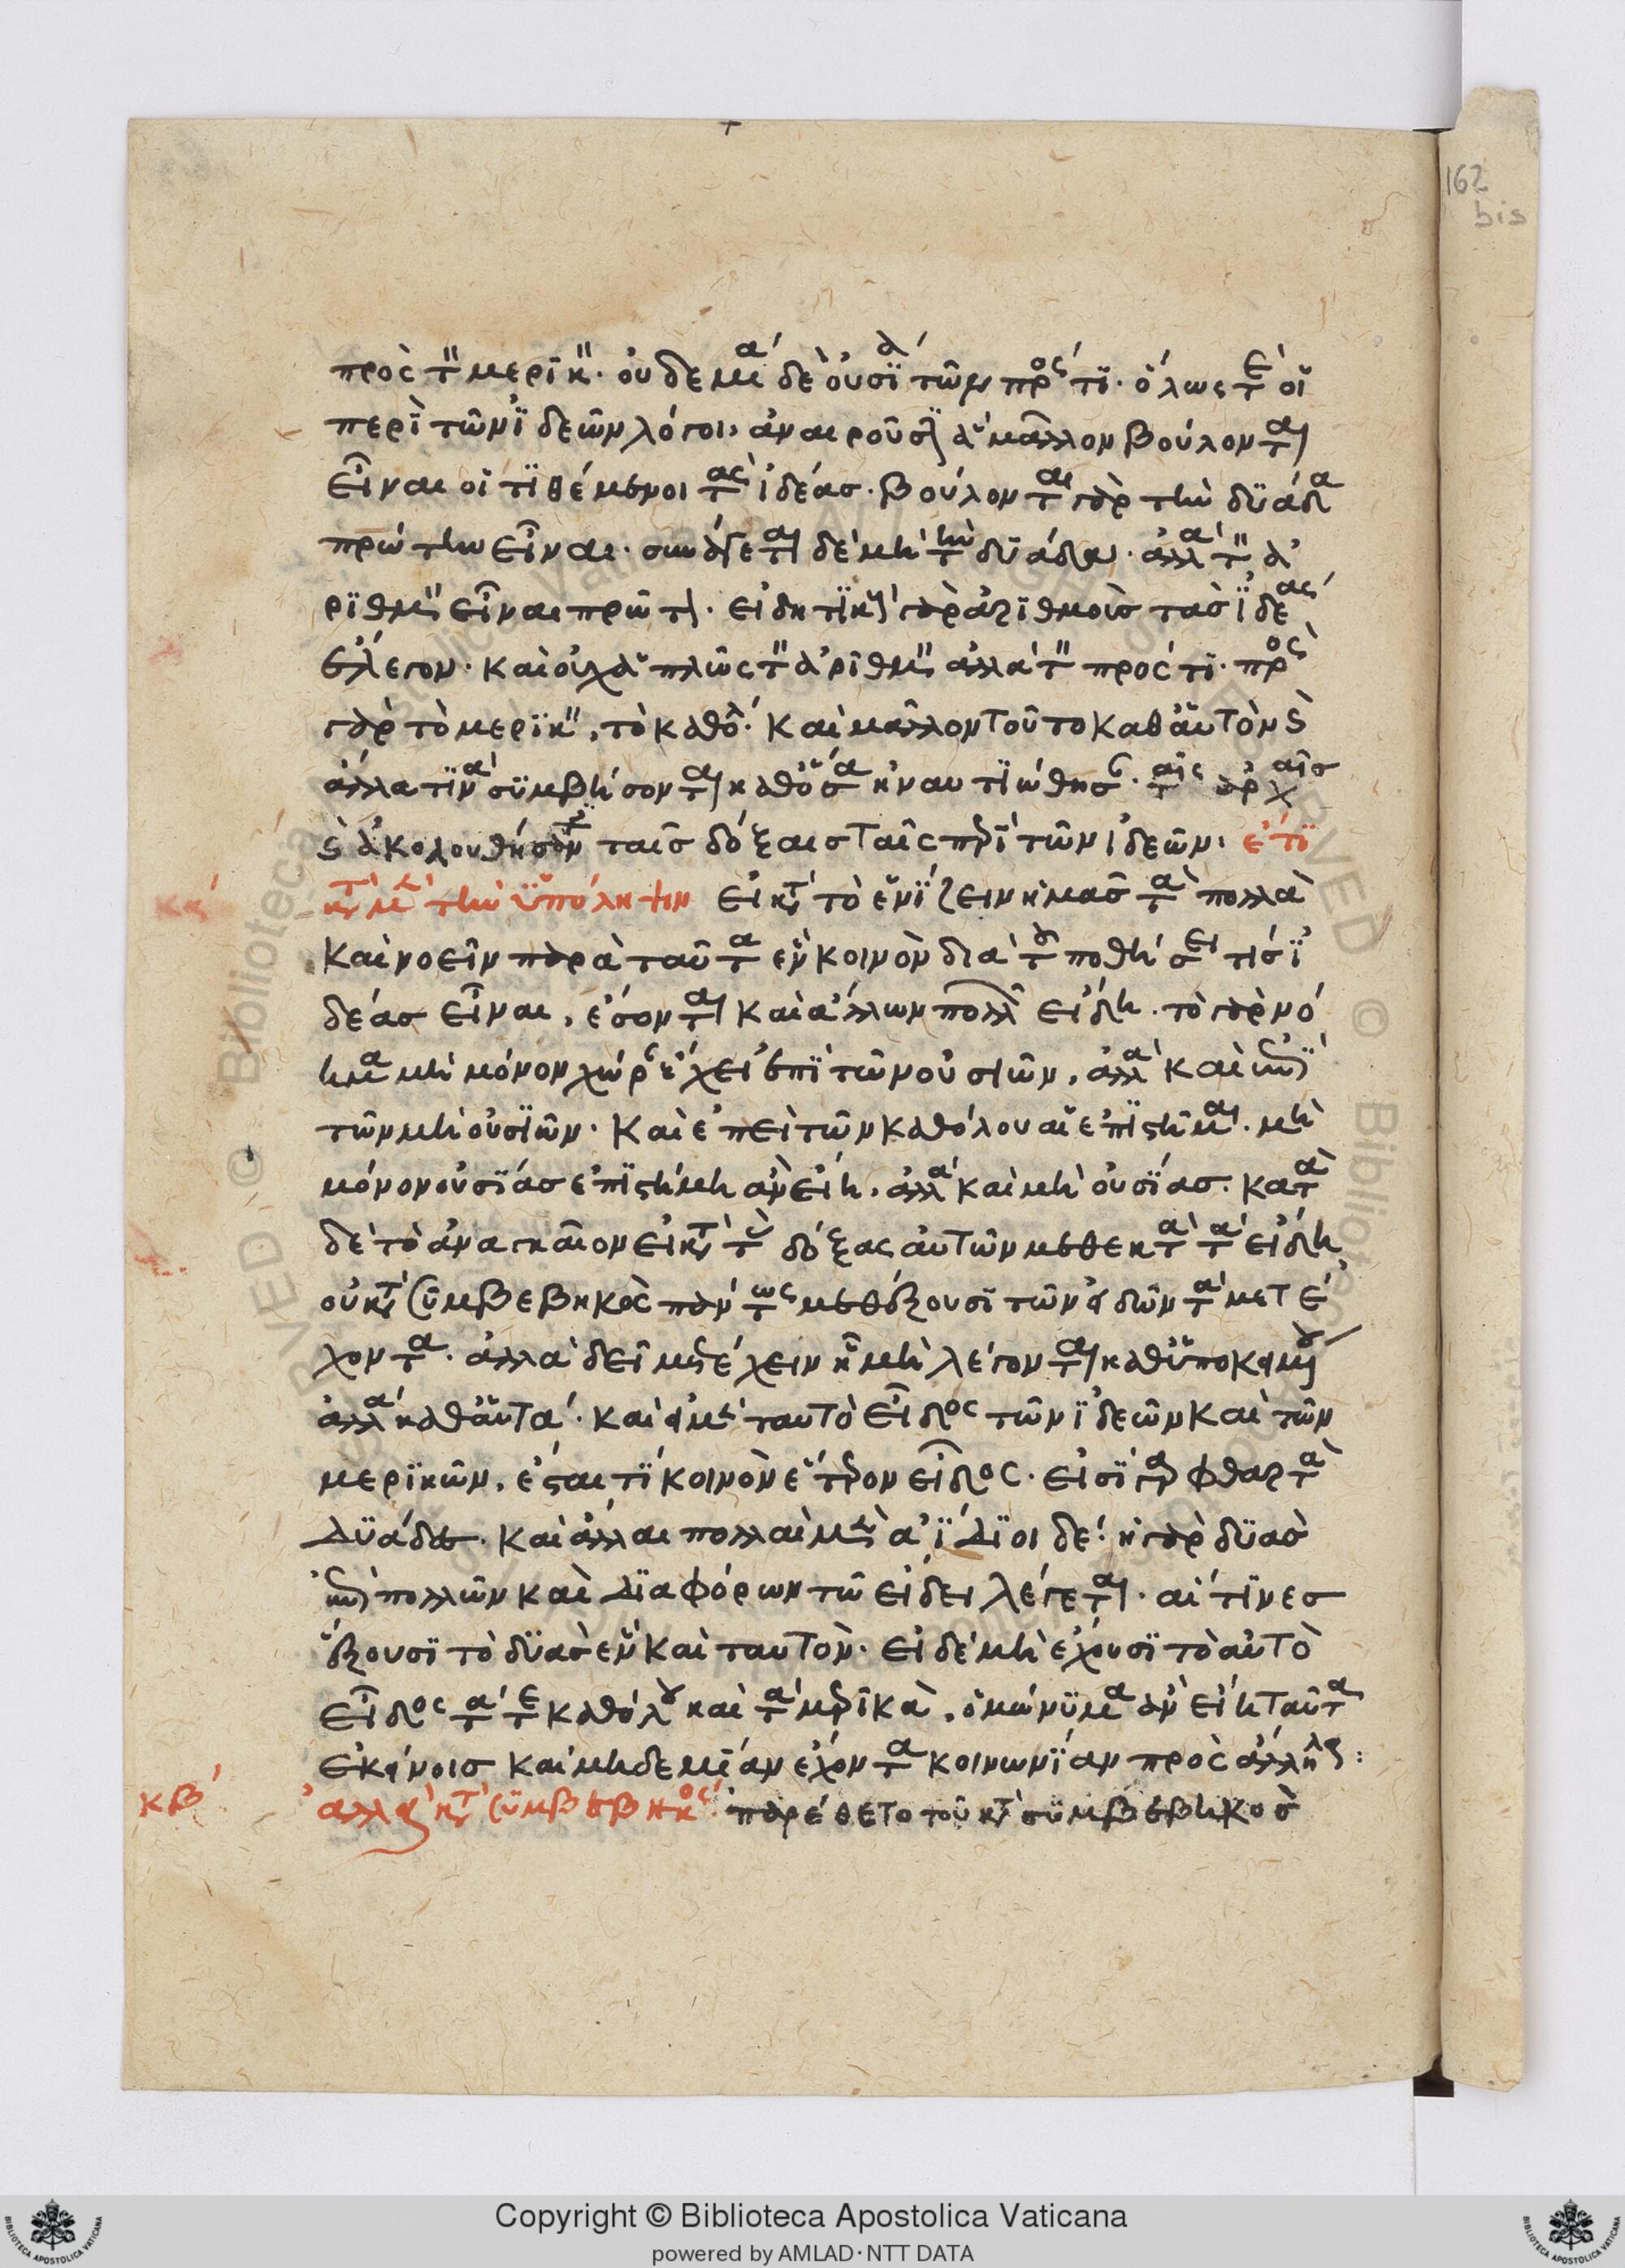 162
bis
πρὸς τὸν μερικόν. οὐδεμία δὲ οὐσία τῶν πρός τι. ὅλως τε οἱ
περὶ τῶν ἰδεῶν λόγοι, ἀναιροῦσιν ἃ μᾶλλον βούλονται
εἶναι οἱ τιθέμενοι τὰς ἰδέας. βούλονται γὰρ τὴν δυάδα
πρώτην εἶναι. συνάγεται δὲ μὴ τὴν δυάδα. ἀλλὰ τὸν ἀ
ριθμὸν εἶναι πρῶτον. εἰδητικοὺς γὰρ ἀριθμοὺς τὰς ἰδέας
ἔλεγον. καὶ οὐχ ἁπλῶς τὸν ἀριθμὸν ἀλλὰ τὸν πρός τι. πρὸς
γὰρ τὸ μερικὸν, τὸ καθόλου. καὶ μᾶλλον τοῦτο καθ' αὑτὸ
ἄλλα τινὰ συμβήσονται καθ' ὅσα ἠναντιώθησαν ταῖς ἀρχαῖς
ἀκολουθήσαντες ταῖς δόξαις ταῖς περὶ τῶν ἰδεῶν. ἔτι
κα κατὰ μὲν τὴν ὑπόληψιν εἰ κατὰ τὸ ἑνίζειν ἡμᾶς τὰ πολλὰ
καὶ νοεῖν παρὰ ταῦτα ἓν κοινὸν διὰ τοῦτο ποθήσει τις ἰ
δέας εἶναι, ἔσονται καὶ ἄλλων πολλῶν εἴδη. τὸ γὰρ νό
ημα μὴ μόνον χώραν ἔχει ἐπὶ τῶν οὐσιῶν, ἀλλὰ καὶ ἐπὶ
τῶν μὴ οὐσιῶν. καὶ ἐπεὶ τῶν καθόλου αἱ ἐπιστῆμαι. μὴ
μόνον οὐσίας ἐπιστήμη ἂν εἴη, ἀλλὰ καὶ μὴ οὐσίας. κατὰ
δὲ τὸ ἀναγκαῖον εἰ κατὰ τὰς δόξας αὐτῶν μεθεκτὰ τὰ εἴδη
οὐ κατὰ συμβεβηκὸς πάντως μεθέξουσι τῶν εἰδῶν τὰ μετέ
χοντα. ἀλλὰ δεῖ μετέχειν ᾗ μὴ λέγονται καθ' ὑποκειμένου
ἀλλὰ καθ' αὑτά. καὶ εἰ μὲν ταυτὸ εἶδος τῶν ἰδεῶν καὶ τῶν
μερικῶν, ἔσται τι κοινὸν ἕτερον εἶδος. εἰσὶ γὰρ φθαρταὶ
δυάδες. καὶ ἄλλαι πολλαὶ μὲν ἀΐδιοι δέ. ἡ γὰρ δυὰς
ἐπὶ πολλῶν καὶ διαφόρων τῷ εἴδει λέγεται. αἵτινες
ἕξουσι τὸ δυὰς ἓν καὶ ταυτόν. εἰ δὲ μὴ ἔχουσι τὸ αὐτὸ
εἶδος τά τε καθόλου καὶ τὰ μερικὰ, ὁμώνυμα ἂν εἴη ταῦτα
ἐκείνοις καὶ μηδεμίαν ἔχοντα κοινωνίαν πρὸς ἄλληλα:
κβ ἀλλ' οὐ κατὰ συμβεβηκός. παρέθετο τοῦ κατὰ συμβεβηκὸς
Copyright © Biblioteca Apostolica Vaticana
powered by AMLAD·NTT DATA